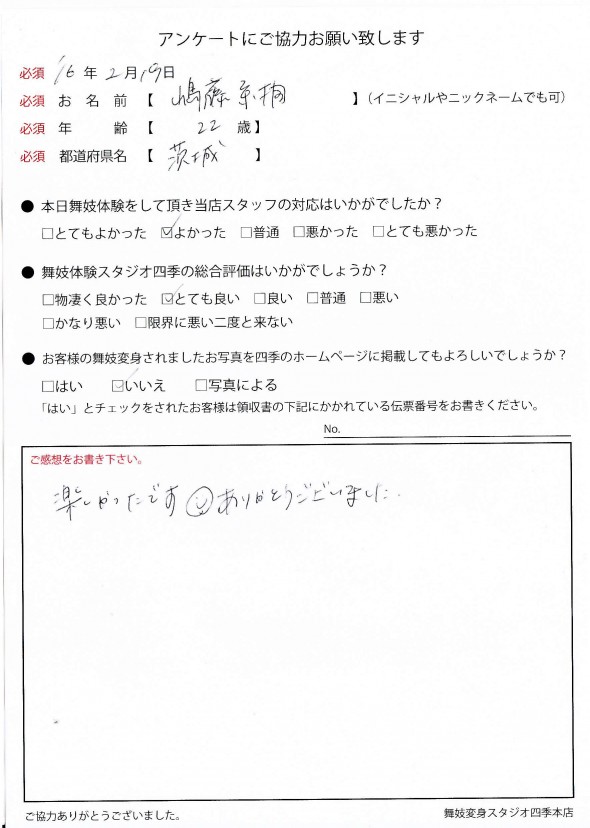 アンケートにご協力お願い致します
必須 '16 年 2 月 19 日
必須 お 名 前 【 】（イニシャルやニックネームでも可）
必須 年 齢 【 22 歳】
必須 都道府県名 【 茨城 】
● 本日舞妓体験をして頂き当店スタッフの対応はいかがでしたか？
□とてもよかった ☑よかった □普通 □悪かった □とても悪かった
● 舞妓体験スタジオ四季の総合評価はいかがでしょうか？
□物凄く良かった ☑とても良い □良い □普通 □悪い
□かなり悪い □限界に悪い二度と来ない
● お客様の舞妓変身されましたお写真を四季のホームページに掲載してもよろしいでしょうか？
□はい ☑いいえ □写真による
「はい」とチェックをされたお客様は領収書の下記にかかれている伝票番号をお書きください。
No.
ご感想をお書き下さい。
楽しかったです☺ありがとうございました.
ご協力ありがとうございました。 舞妓変身スタジオ四季本店